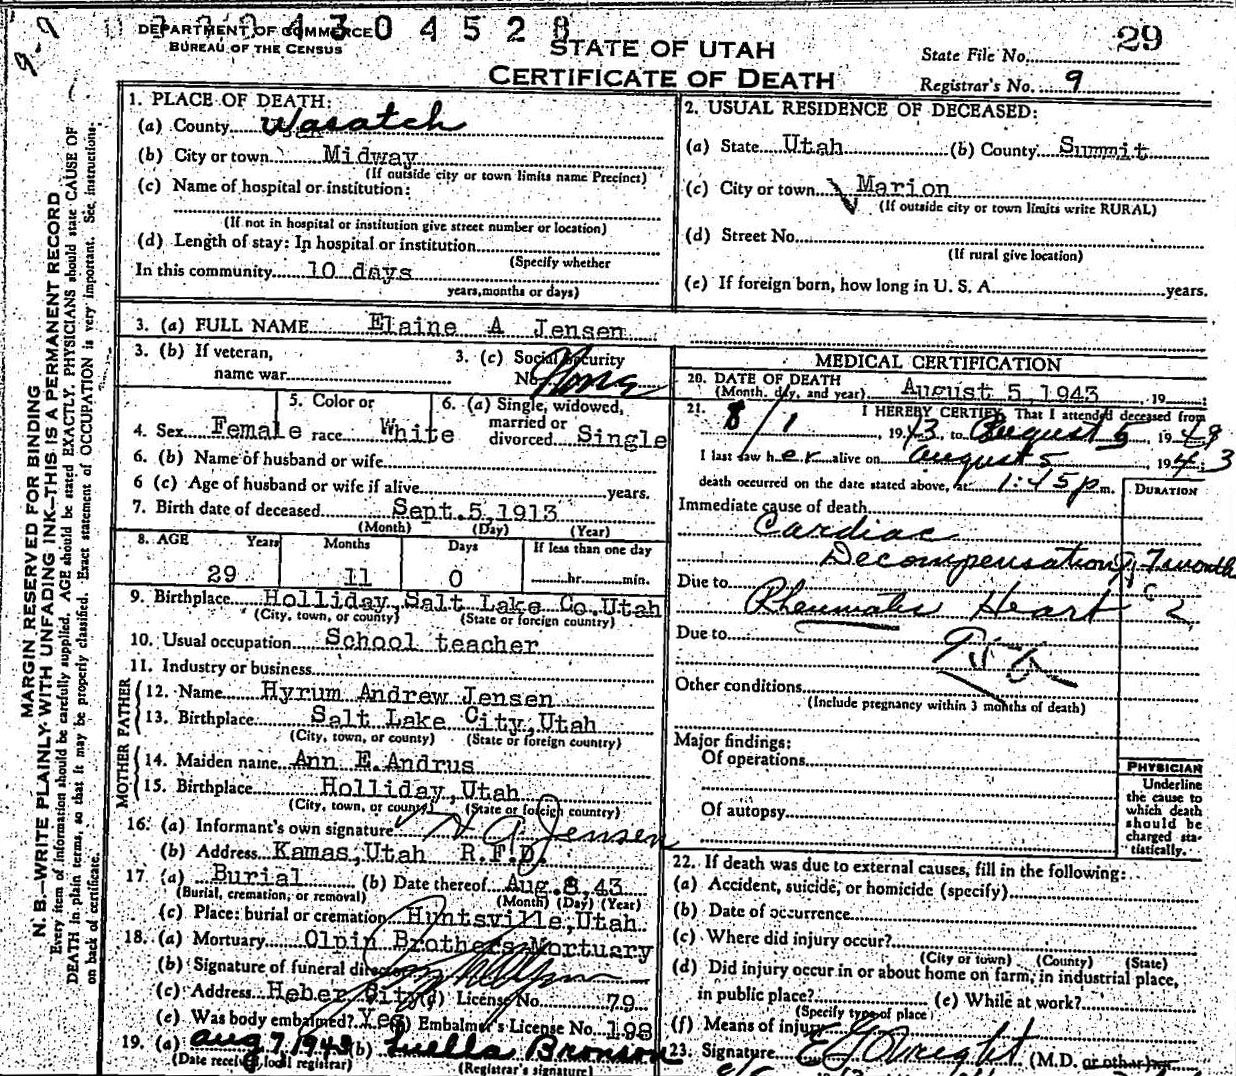 9-9
DEPARTMENT OF COMMERCE
BUREAU OF THE CENSUS
4 3 0 4 5 2 8
STATE OF UTAH
CERTIFICATE OF DEATH
State File No. 29
Registrar's No. 9
MARGIN RESERVED FOR BINDING
N. B.—WRITE PLAINLY WITH UNFADING INK—THIS IS A PERMANENT RECORD
Every item of information should be carefully supplied. AGE should be stated EXACTLY. PHYSICIANS should state CAUSE OF
DEATH in plain terms, so that it may be properly classified. Exact statement of OCCUPATION is very important. See instructions
on back of certificate.
1. PLACE OF DEATH:
(a) County Wasatch
(b) City or town Midway
(If outside city or town limits name Precinct)
(c) Name of hospital or institution:
(If not in hospital or institution give street number or location)
(d) Length of stay: In hospital or institution
(Specify whether
In this community 10 days
years, months or days)
2. USUAL RESIDENCE OF DECEASED:
(a) State Utah (b) County Summit
(c) City or town Marion
(If outside city or town limits write RURAL)
(d) Street No.
(If rural give location)
(e) If foreign born, how long in U. S. A. years.
3. (a) FULL NAME Elaine A Jensen
3. (b) If veteran,
name war
3. (c) Social Security
No. None
4. Sex Female
5. Color or
race White
6. (a) Single, widowed,
married or
divorced Single
6. (b) Name of husband or wife
6 (c) Age of husband or wife if alive years.
7. Birth date of deceased Sept. 5 1913
(Month) (Day) (Year)
8. AGE Years Months Days If less than one day
29 11 0 hr. min.
9. Birthplace Holliday, Salt Lake Co. Utah
(City, town, or county) (State or foreign country)
10. Usual occupation School teacher
11. Industry or business
FATHER
12. Name Hyrum Andrew Jensen
13. Birthplace Salt Lake City, Utah
(City, town, or county) (State or foreign country)
MOTHER
14. Maiden name Ann E. Andrus
15. Birthplace Holliday, Utah
(City, town, or county) (State or foreign country)
16. (a) Informant's own signature H A Jensen
(b) Address Kamas, Utah R.F.D.
17 (a) Burial (b) Date thereof Aug. 8, 43
(Burial, cremation, or removal) (Month) (Day) (Year)
(c) Place: burial or cremation Huntsville, Utah
18. (a) Mortuary Olpin Brothers Mortuary
(b) Signature of funeral director
(c) Address Heber City (d) License No. 79
(e) Was body embalmed? Yes (f) Embalmer's License No. 198
19. (a) Aug 7 1943 (b) Luella Bronson
(Date received local registrar) (Registrar's signature)
MEDICAL CERTIFICATION
20. DATE OF DEATH
(Month, day, and year) August 5, 1943, 19
21. I HEREBY CERTIFY, That I attended deceased from
8/1, 1943, to August 5, 1943
I last saw her alive on August 5, 1943
death occurred on the date stated above, at 1:45 p m.
DURATION
Immediate cause of death
Cardiac
Decompensation 7 month
Due to
Rheumatic Heart
Due to
Other conditions
(Include pregnancy within 3 months of death)
Major findings:
Of operations
Of autopsy
PHYSICIAN
Underline
the cause to
which death
should be
charged sta-
tistically.
22. If death was due to external causes, fill in the following:
(a) Accident, suicide, or homicide (specify)
(b) Date of occurrence
(c) Where did injury occur?
(City or town) (County) (State)
(d) Did injury occur in or about home on farm, in industrial place,
in public place? (e) While at work?
(Specify type of place)
(f) Means of injury
23. Signature (M.D. or other)